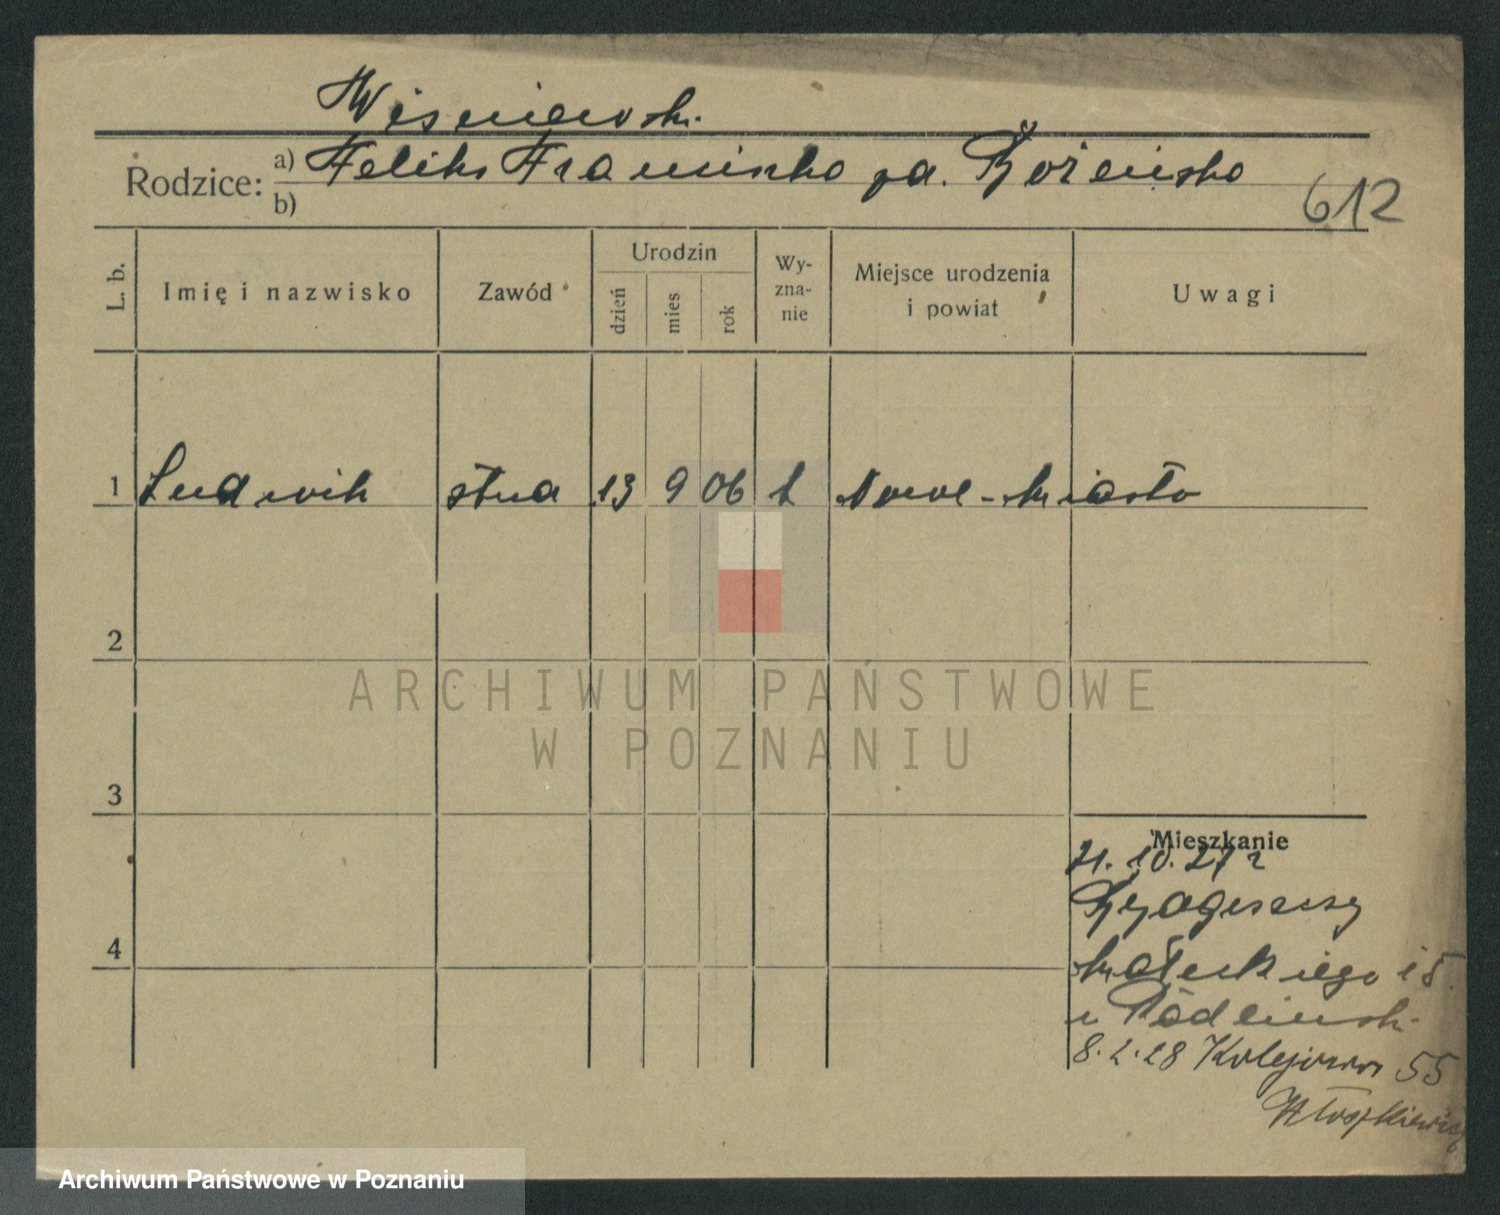 Wiśniewski
Rodzice: a) Feliks Franciszka za. Bożeńska
b)
612
L. b. Imię i nazwisko Zawód Urodzin dzień mies rok Wy-zna-nie Miejsce urodzenia i powiat Uwagi
1 Ludwik stud 13 9 06 k Nowe-Miasto
2
3
4
Mieszkanie
21.10.27 r
Bydgoszczy
Małeckiego 15
u
8.2.28 Kolejowa 55
ARCHIWUM PAŃSTWOWE
W POZNANIU
Archiwum Państwowe w Poznaniu